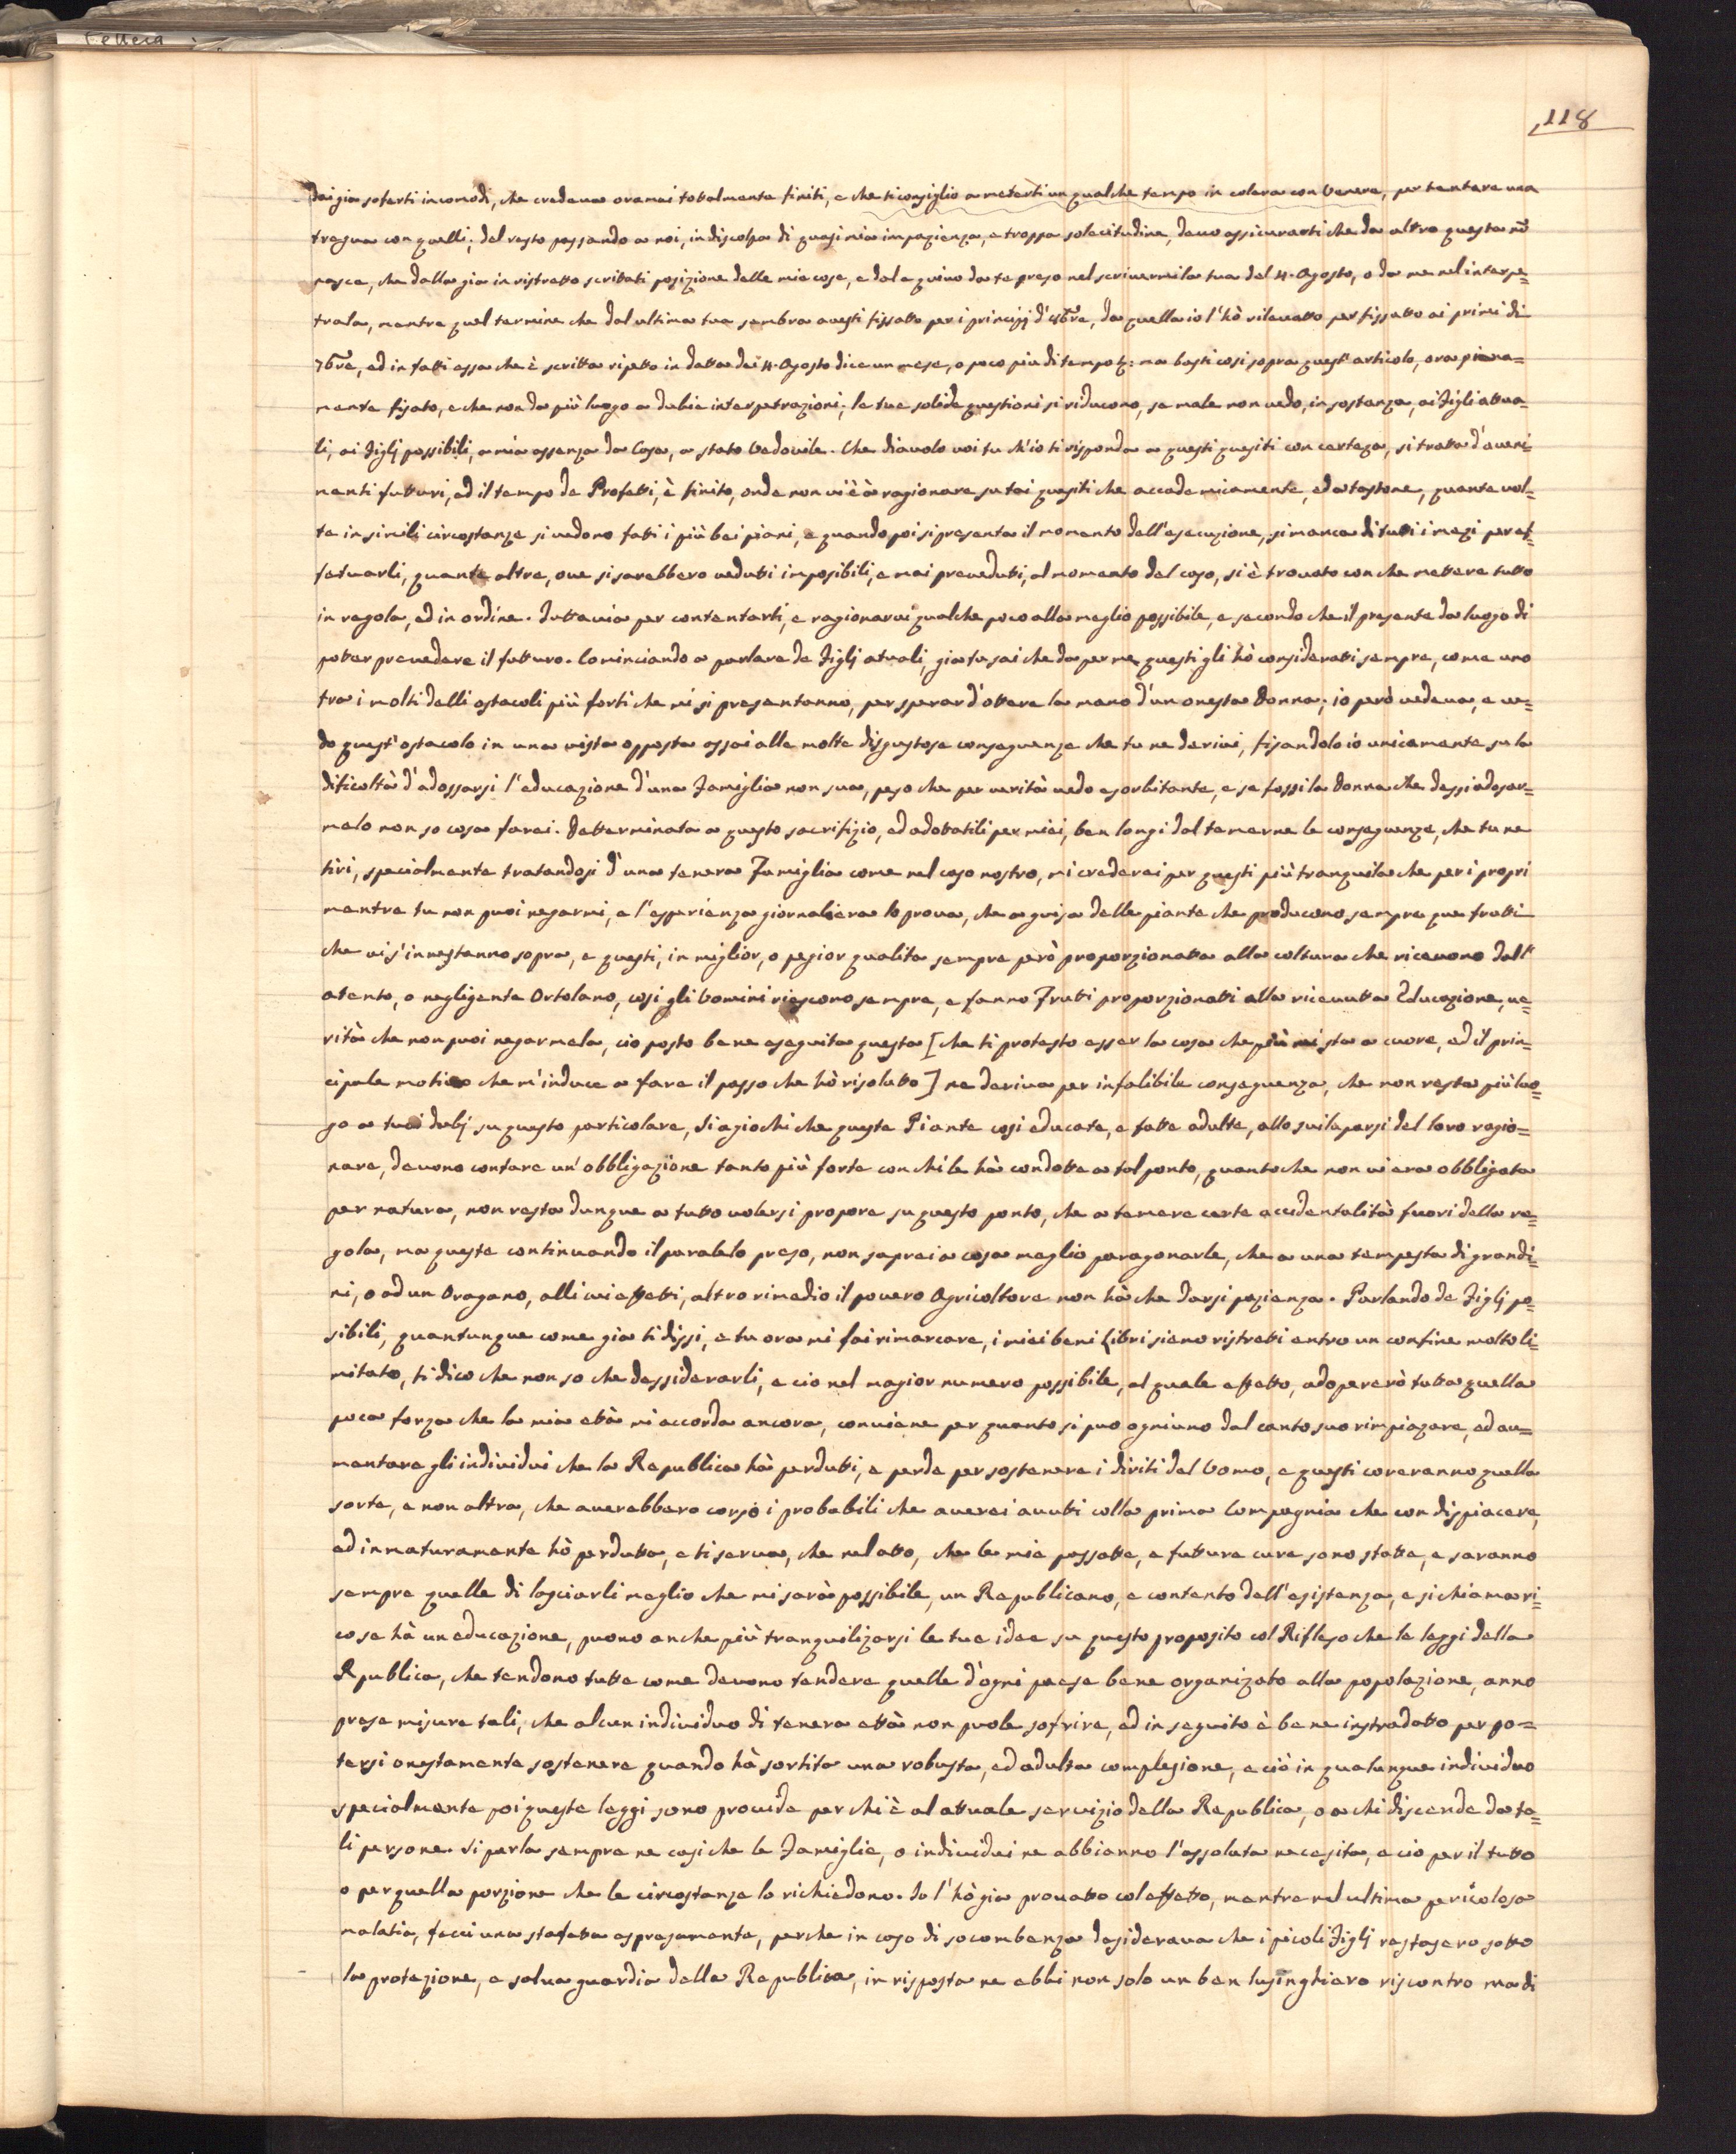 Lettera
118
dai gia soferti incomodi, che credeva oramai totalmente finiti, e che ti consiglio a meterti un qualche tempo in colera con Venere, per tentare una
tregua con quelli; del resto passando a noi, in discolpa di quasi mia impazienza, e troppa solecitudine, devo assicurarti che da altro questa nõ
nasce, che dalla gia in ristretto scritati posizione delle mie cose, e dal equivo da te preso nel scrivermi la tua del 4. Agosto, o da me nel interpe=
trala, mentre quel termine che dal ultima tua sembra avesti fissatto per i principj d'8bre, da quella io l'hò rilevatto per fissatto ai primi di
7bre, ed in fatti essa che è scritta ripetto in datta dei 4. Agosto dice un mese, o poco più di tempo &: ma basti cosi sopra quest'articolo, ora piena=
mente fisato, e che non da più luogo a dubie interpetrazioni; le tue solide questioni si riducono, se male non vedo, in sostanza, ai Figli attua=
li, ai Figlj possibili, a mia assenza da Casa, a stato Vedovile. Che diavolo voi tu ch'io ti risponda a questi quesiti con certeza, si trata d'aveni=
menti futturi, ed il tempo de Profetti, è finito, onde non vi è à ragionare su tai quesiti che accademicamente, ed a tastone, quante vol=
te in simili circostanze si vedono fatti i più bei piani, e quando poi si presenta il momento dell'esecuzione, si manca di tutti i mezi per ef=
fetuarli, quante altre, ove si sarebbero veduti imposibili, e mai preveduti, al momento del caso, si è trovato con che mettere tutto
in regola, ed in ordine. Tuttavia per contentarti, e ragionarvi qualche poco alla meglio possibile, e secondo che il presente da luogo di
poter prevedere il futturo. Cominciando a parlare de Figlj atuali, gia tu sai che da per me questi gli hò considerati sempre, come uno
tra i molti delli ostacoli più forti che mi si presentanno, per sperar d'ottere la mano d'un onesta Donna; io però vedeva, e ve=
do quest'ostacolo in una vista opposta assai alle molte disgustose conseguenze che tu ne derivi, fisandolo io unicamente su la
dificoltà d'adossarsi l'educazione d'una Famiglia non sua, peso che per verità vedo esorbitante, e se fossi la Donna che dessi adosar=
melo non so cosa farei. Detterminata a questo sacrifizio, ed adottatili per miei, ben longi dal temerne le conseguenze, che tu ne
tiri, specialmente tratandosi d'una tenera Famiglia come nel caso nostro, mi crederei per questi più tranquila che per i propri
mentre tu non puoi negarmi, e l'esperienza giornaliera lo prova, che a guisa delle piante che producono sempre que frutti
che vi s'innestanno sopra, e questi, in miglior, o pegior qualita sempre però proporzionata alla coltura che ricevono dall'
atento, o negligente Ortolano, cosi gli Uomini riescono sempre, e fanno Fruti proporzionati alla ricevuta Educazione, ve=
rità che non puoi negarmela, cio posto bene eseguita questa [che ti protesto esser la cosa che più mi sta a cuore, ed il prin=
cipale motivo che m'induce a fare il passo che hò risolutto] ne deriva per infalibile conseguenza, che non resta più luo=
go a tuoi dubj su questo particolare, Siagiochi che queste Piante cosi educate, e fatte adulte, allo svilaparsi del loro ragio=
nare, devono contare un'obbligazione tanto più forte con chi le hà condotte a tal ponto, quanto che non vi era obbligata
per natura, non resta dunque a tutto volersi propore su questo ponto, che a temere certe accidentalità fuori della re=
gola, ma queste continuando il paralelo preso, non saprei a cosa meglio paragonarle, che a una tempesta di grandi=
ni, o ad un Oragano, alli cui effetti, altro rimedio il povero Agricoltore non hà che darsi pazienza. Parlando de Figlj po=
sibili, quantunque come gia ti dissi, e tu ora mi fai rimarcare, i miei beni Libri siano ristretti entro un confine molto li=
mitato, ti dico che non so che dessiderarli, e cio nel magior numero possibile, al quale effetto, adopererò tutta quella
poca forza che la mia età mi accorda ancora, conviene per quanto si puo ogniuno dal canto suo rimpiazare, ed au=
mentare gli individui che la Republica hà perduti, e perde per sostenere i diriti del Uomo, e questi coreranno quella
sorte, e non altra, che averebbero corso i probabili che averei avuti colla prima Compagnia che con dispiacere,
ed inmaturamente hò perdutta, e ti serva, che nel atto, che le mie passatte, e futture cure sono statte, e saranno
sempre quelle di lasciarli meglio che mi sarà possibile, un Republicano, e contento dell'esistenza, e si chiama ri=
co se hà un educazione, puono anche più tranquilizarsi le tue idee su questo proposito col Rifleso che le leggi della
Republica, che tendono tutte come devono tendere quelle d'ogni paese bene organizato alla popolazione, anno
prese misure tali, che alcun individuo di tenera età non puole sofrire, ed in seguito è bene instradatto per po=
tersi onestamente sostenere quando hà sortita una robusta, ed adulta complesione, e ciò in qualunque individuo
specialmente poi queste leggi sono provide per chi è al attuale servizio della Republica, o a chi discende da ta=
li persone. Si parla sempre ne casi che le Famiglie, o individui ne abbianno l'assoluta necesita, e cio per il tutto
o per quella porzione che le circostanze lo richiedono. Io l'hò gia provatto col effetto, mentre nel ultima pericolosa
malatia, feci una stafetta espresamente, perche in caso di socombenza desiderava che i picoli Figlj restasero sotto
la protezione, e salva guardia della Republica, in risposta ne ebbi non solo un ben lusinghiero riscontro ma di